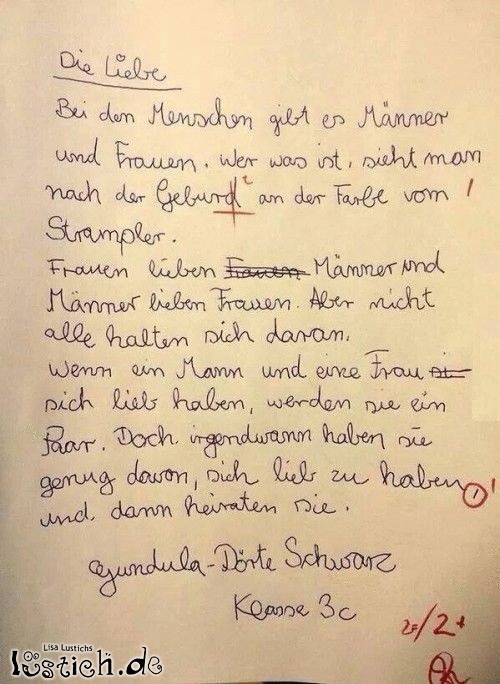 Die Liebe
Bei den Menschen gibt es Männer
und Frauen. Wer was ist, sieht man
nach der Geburd an der Farbe vom
Strampler.
Frauen lieben Frauen Männer und
Männer lieben Frauen. Aber nicht
alle halten sich daran.
Wenn ein Mann und eine Frau si
sich lieb haben, werden sie ein
Paar. Doch irgendwann haben sie
genug davon, sich lieb zu haben
und dann heiraten sie.
Gundula-Dörte Schwarz
Klasse 3c
/2+
Lisa Lustichs
lustich.de